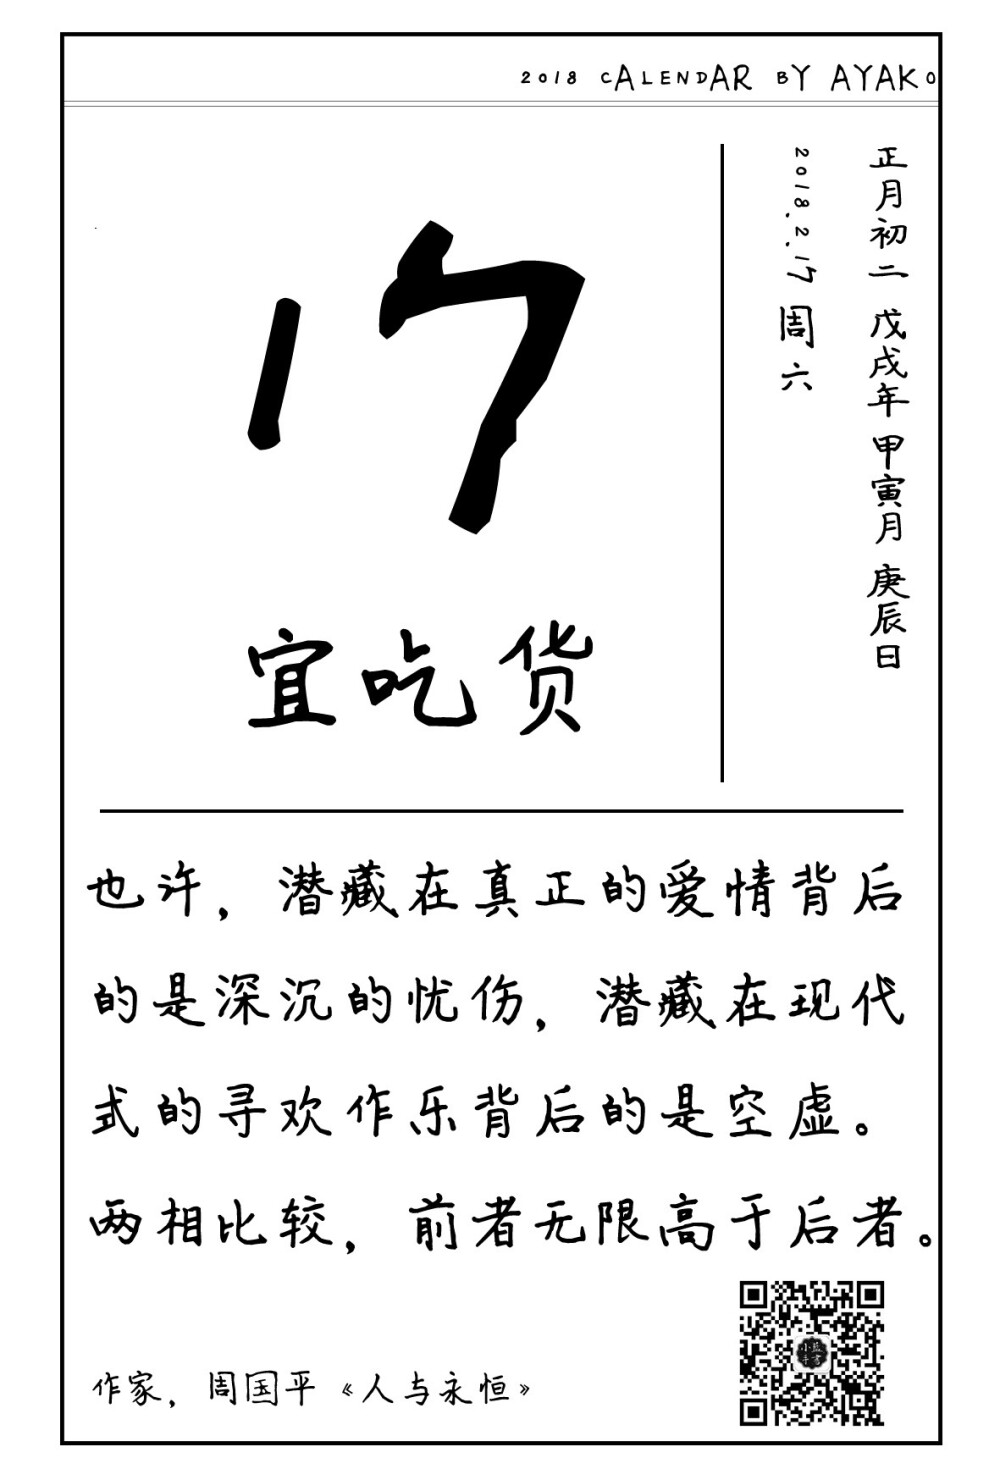 2018 CALENDAR BY AYAKO
正月初二 戊戌年 甲寅月 庚辰日
2018.2.17 周六
17
宜吃货
也许，潜藏在真正的爱情背后
的是深沉的忧伤，潜藏在现代
式的寻欢作乐背后的是空虚。
两相比较，前者无限高于后者。
作家，周国平《人与永恒》